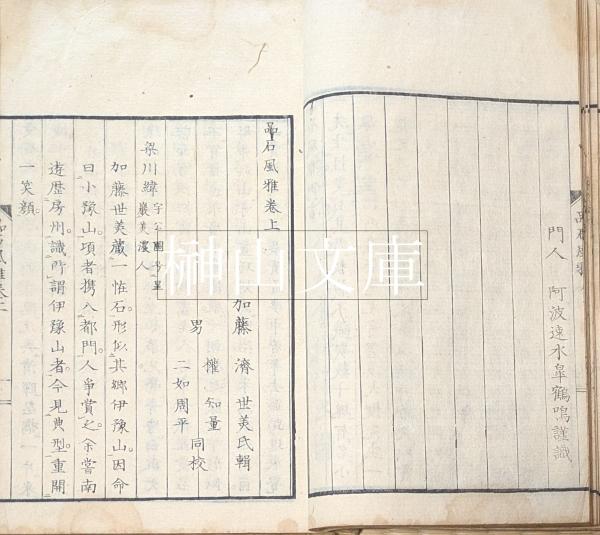 門人　阿波速水皐鶴鳴謹識
品石風雅卷上
加藤　濟　世美氏輯
男　懼　知量
二如周平　同校
梁川緯
加藤世美藏一怪石形似其鄉伊豫山因命
曰小豫山項者携入都門人爭賞之余嘗南
遊歷房州識所謂伊豫山者今見典型重開
一笑顔
榊山文庫